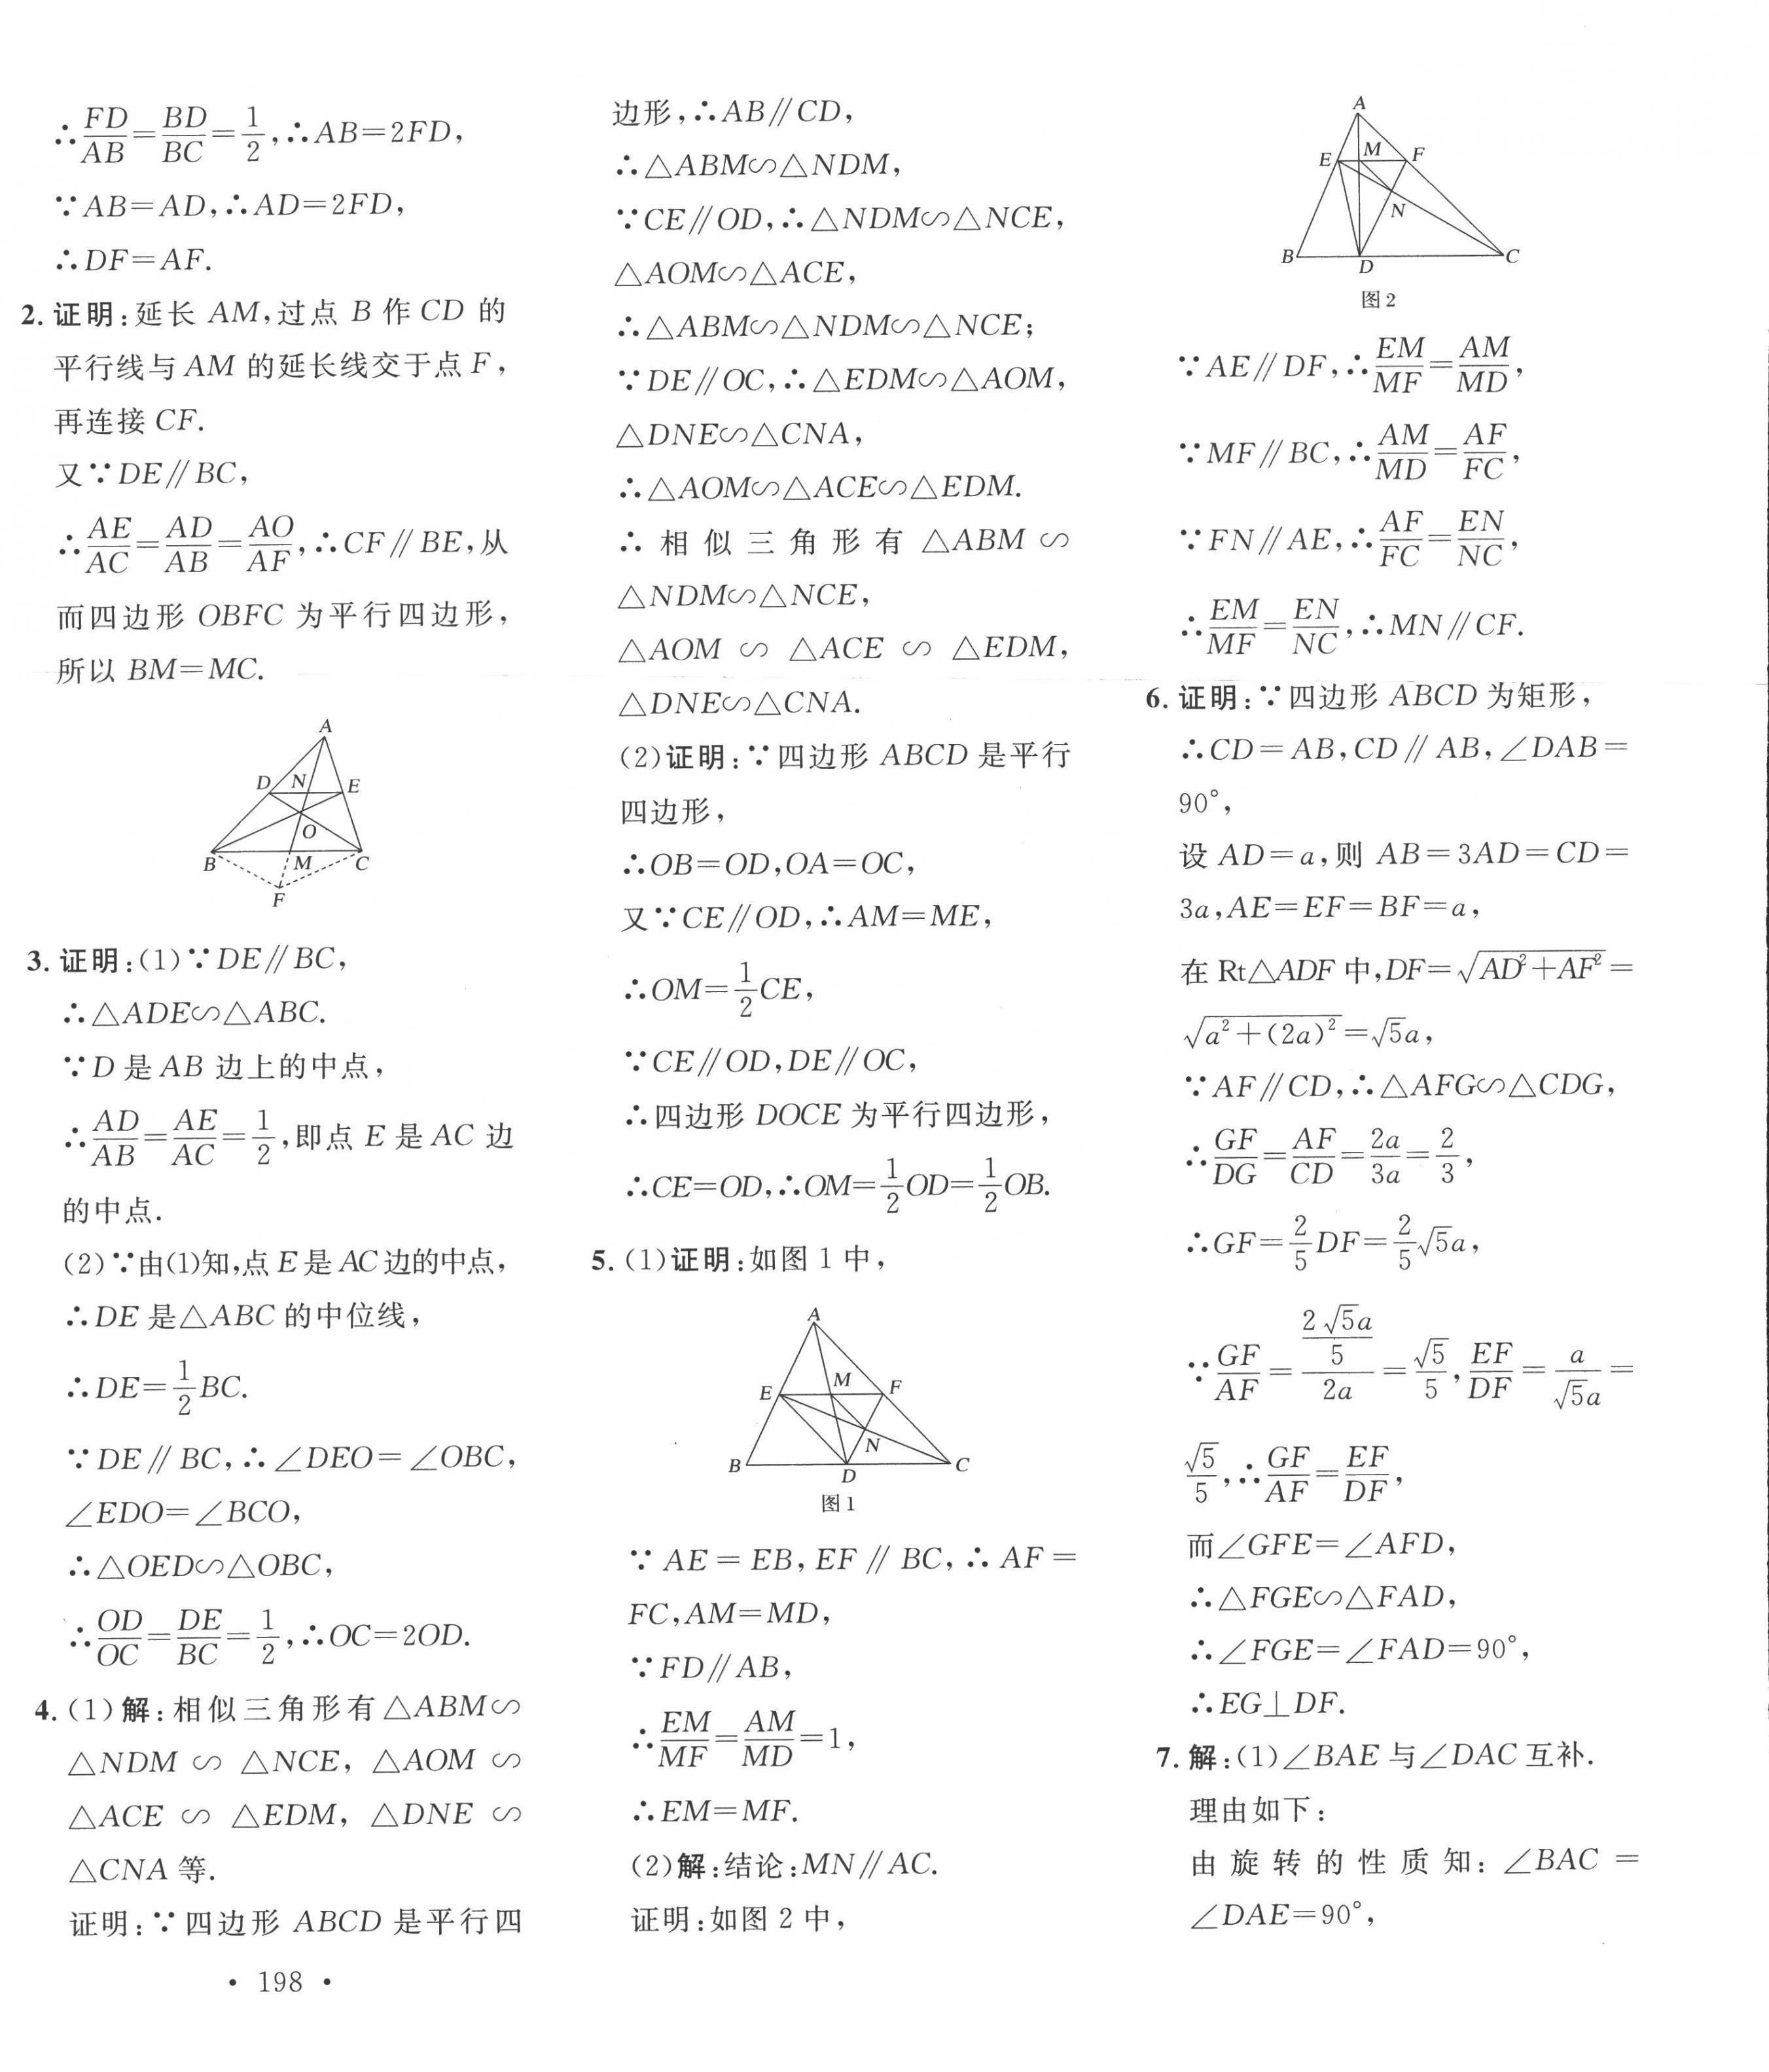 ∴FD/AB=BD/BC=1/2,∴AB=2FD,
∵AB=AD,∴AD=2FD,
∴DF=AF.
2. 证明:延长 AM,过点 B 作 CD 的
平行线与 AM 的延长线交于点 F,
再连接 CF.
又∵DE∥BC,
∴AE/AC=AD/AB=AO/AF,∴CF∥BE,从
而四边形 OBFC 为平行四边形,
所以 BM=MC.
A
D N E
O
B M C
F
3. 证明:(1)∵DE∥BC,
∴△ADE∽△ABC.
∵D 是 AB 边上的中点,
∴AD/AB=AE/AC=1/2,即点 E 是 AC 边
的中点.
(2)∵由(1)知,点 E 是 AC 边的中点,
∴DE 是△ABC 的中位线,
∴DE=1/2BC.
∵DE∥BC,∴∠DEO=∠OBC,
∠EDO=∠BCO,
∴△OED∽△OBC,
∴OD/OC=DE/BC=1/2,∴OC=2OD.
4. (1)解:相似三角形有△ABM∽
△NDM ∽ △NCE, △AOM ∽
△ACE ∽ △EDM, △DNE ∽
△CNA 等.
证明:∵四边形 ABCD 是平行四
· 198 ·
边形,∴AB∥CD,
∴△ABM∽△NDM,
∵CE∥OD,∴△NDM∽△NCE,
△AOM∽△ACE,
∴△ABM∽△NDM∽△NCE;
∵DE∥OC,∴△EDM∽△AOM,
△DNE∽△CNA,
∴△AOM∽△ACE∽△EDM.
∴相似三角形有△ABM ∽
△NDM∽△NCE,
△AOM ∽ △ACE ∽ △EDM,
△DNE∽△CNA.
(2)证明:∵四边形 ABCD 是平行
四边形,
∴OB=OD,OA=OC,
又∵CE∥OD,∴AM=ME,
∴OM=1/2CE,
∵CE∥OD,DE∥OC,
∴四边形 DOCE 为平行四边形,
∴CE=OD,∴OM=1/2OD=1/2OB.
5. (1)证明:如图 1 中,
A
E M F
N
B D C
图1
∵AE=EB,EF∥BC,∴AF=
FC,AM=MD,
∵FD∥AB,
∴EM/MF=AM/MD=1,
∴EM=MF.
(2)解:结论:MN∥AC.
证明:如图 2 中,
A
E M F
N
B D C
图2
∵AE∥DF,∴EM/MF=AM/MD,
∵MF∥BC,∴AM/MD=AF/FC,
∵FN∥AE,∴AF/FC=EN/NC,
∴EM/MF=EN/NC,∴MN∥CF.
6. 证明:∵四边形 ABCD 为矩形,
∴CD=AB,CD∥AB,∠DAB=
90°,
设 AD=a,则 AB=3AD=CD=
3a,AE=EF=BF=a,
在 Rt△ADF 中,DF=√(AD²+AF²)=
√(a²+(2a)²)=√5a,
∵AF∥CD,∴△AFG∽△CDG,
∴GF/DG=AF/CD=2a/3a=2/3,
∴GF=2/5DF=2/5√5a,
∵GF/AF=(2√5a/5)/2a=√5/5,EF/DF=a/√5a=
√5/5,∴GF/AF=EF/DF,
而∠GFE=∠AFD,
∴△FGE∽△FAD,
∴∠FGE=∠FAD=90°,
∴EG⊥DF.
7. 解:(1)∠BAE 与∠DAC 互补.
理由如下:
由旋转的性质知:∠BAC =
∠DAE=90°,